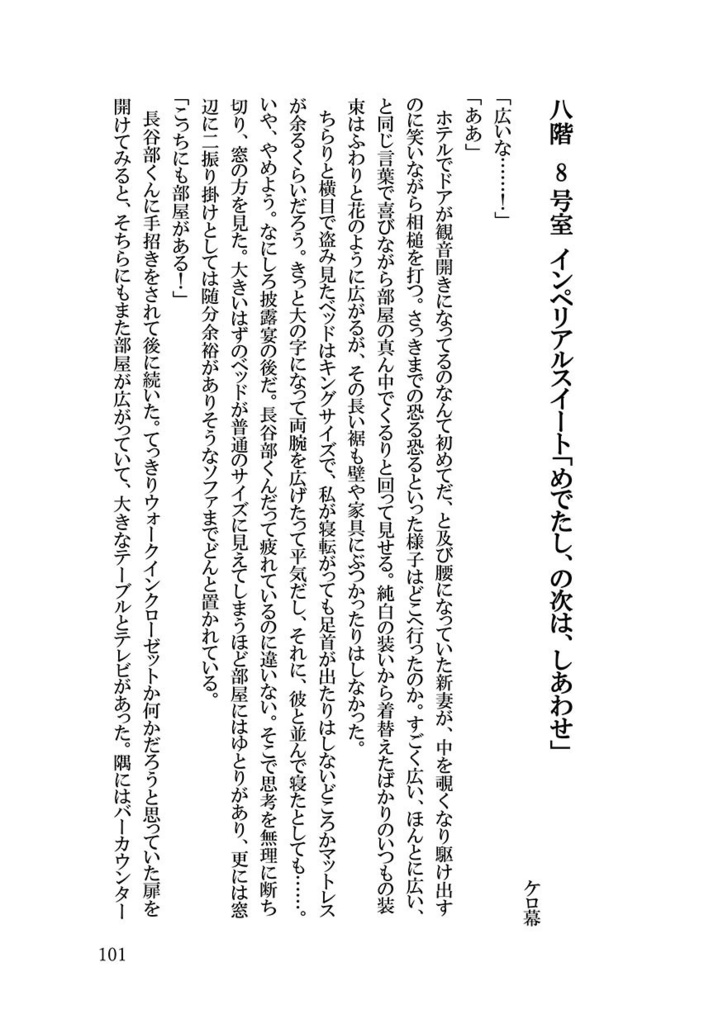 八階　8号室　インペリアルスイート「めでたし、の次は、しあわせ」
ケロ幕
「広いな……！」
「ああ」
　ホテルでドアが観音開きになってるのなんて初めてだ、と及び腰になっていた新妻が、中を覗くなり駆け出す
のに笑いながら相槌を打つ。さっきまでの恐る恐るといった様子はどこへ行ったのか。すごく広い、ほんとに広い、
と同じ言葉で喜びながら部屋の真ん中でくるりと回って見せる。純白の装いから着替えたばかりのいつもの装
束はふわりと花のように広がるが、その長い裾も壁や家具にぶつかったりはしなかった。
　ちらりと横目で盗み見たベッドはキングサイズで、私が寝転がっても足首が出たりはしないどころかマットレス
が余るくらいだろう。きっと大の字になって両腕を広げたって平気だし、それに、彼と並んで寝たとしても……。
いや、やめよう。なにしろ披露宴の後だ。長谷部くんだって疲れているのに違いない。そこで思考を無理に断ち
切り、窓の方を見た。大きいはずのベッドが普通のサイズに見えてしまうほど部屋にはゆとりがあり、更には窓
辺に二振り掛けとしては随分余裕がありそうなソファまでどんと置かれている。
「こっちにも部屋がある！」
　長谷部くんに手招きをされて後に続いた。てっきりウォークインクローゼットか何かだろうと思っていた扉を
開けてみると、そちらにもまた部屋が広がっていて、大きなテーブルとテレビがあった。隅にはバーカウンター
101